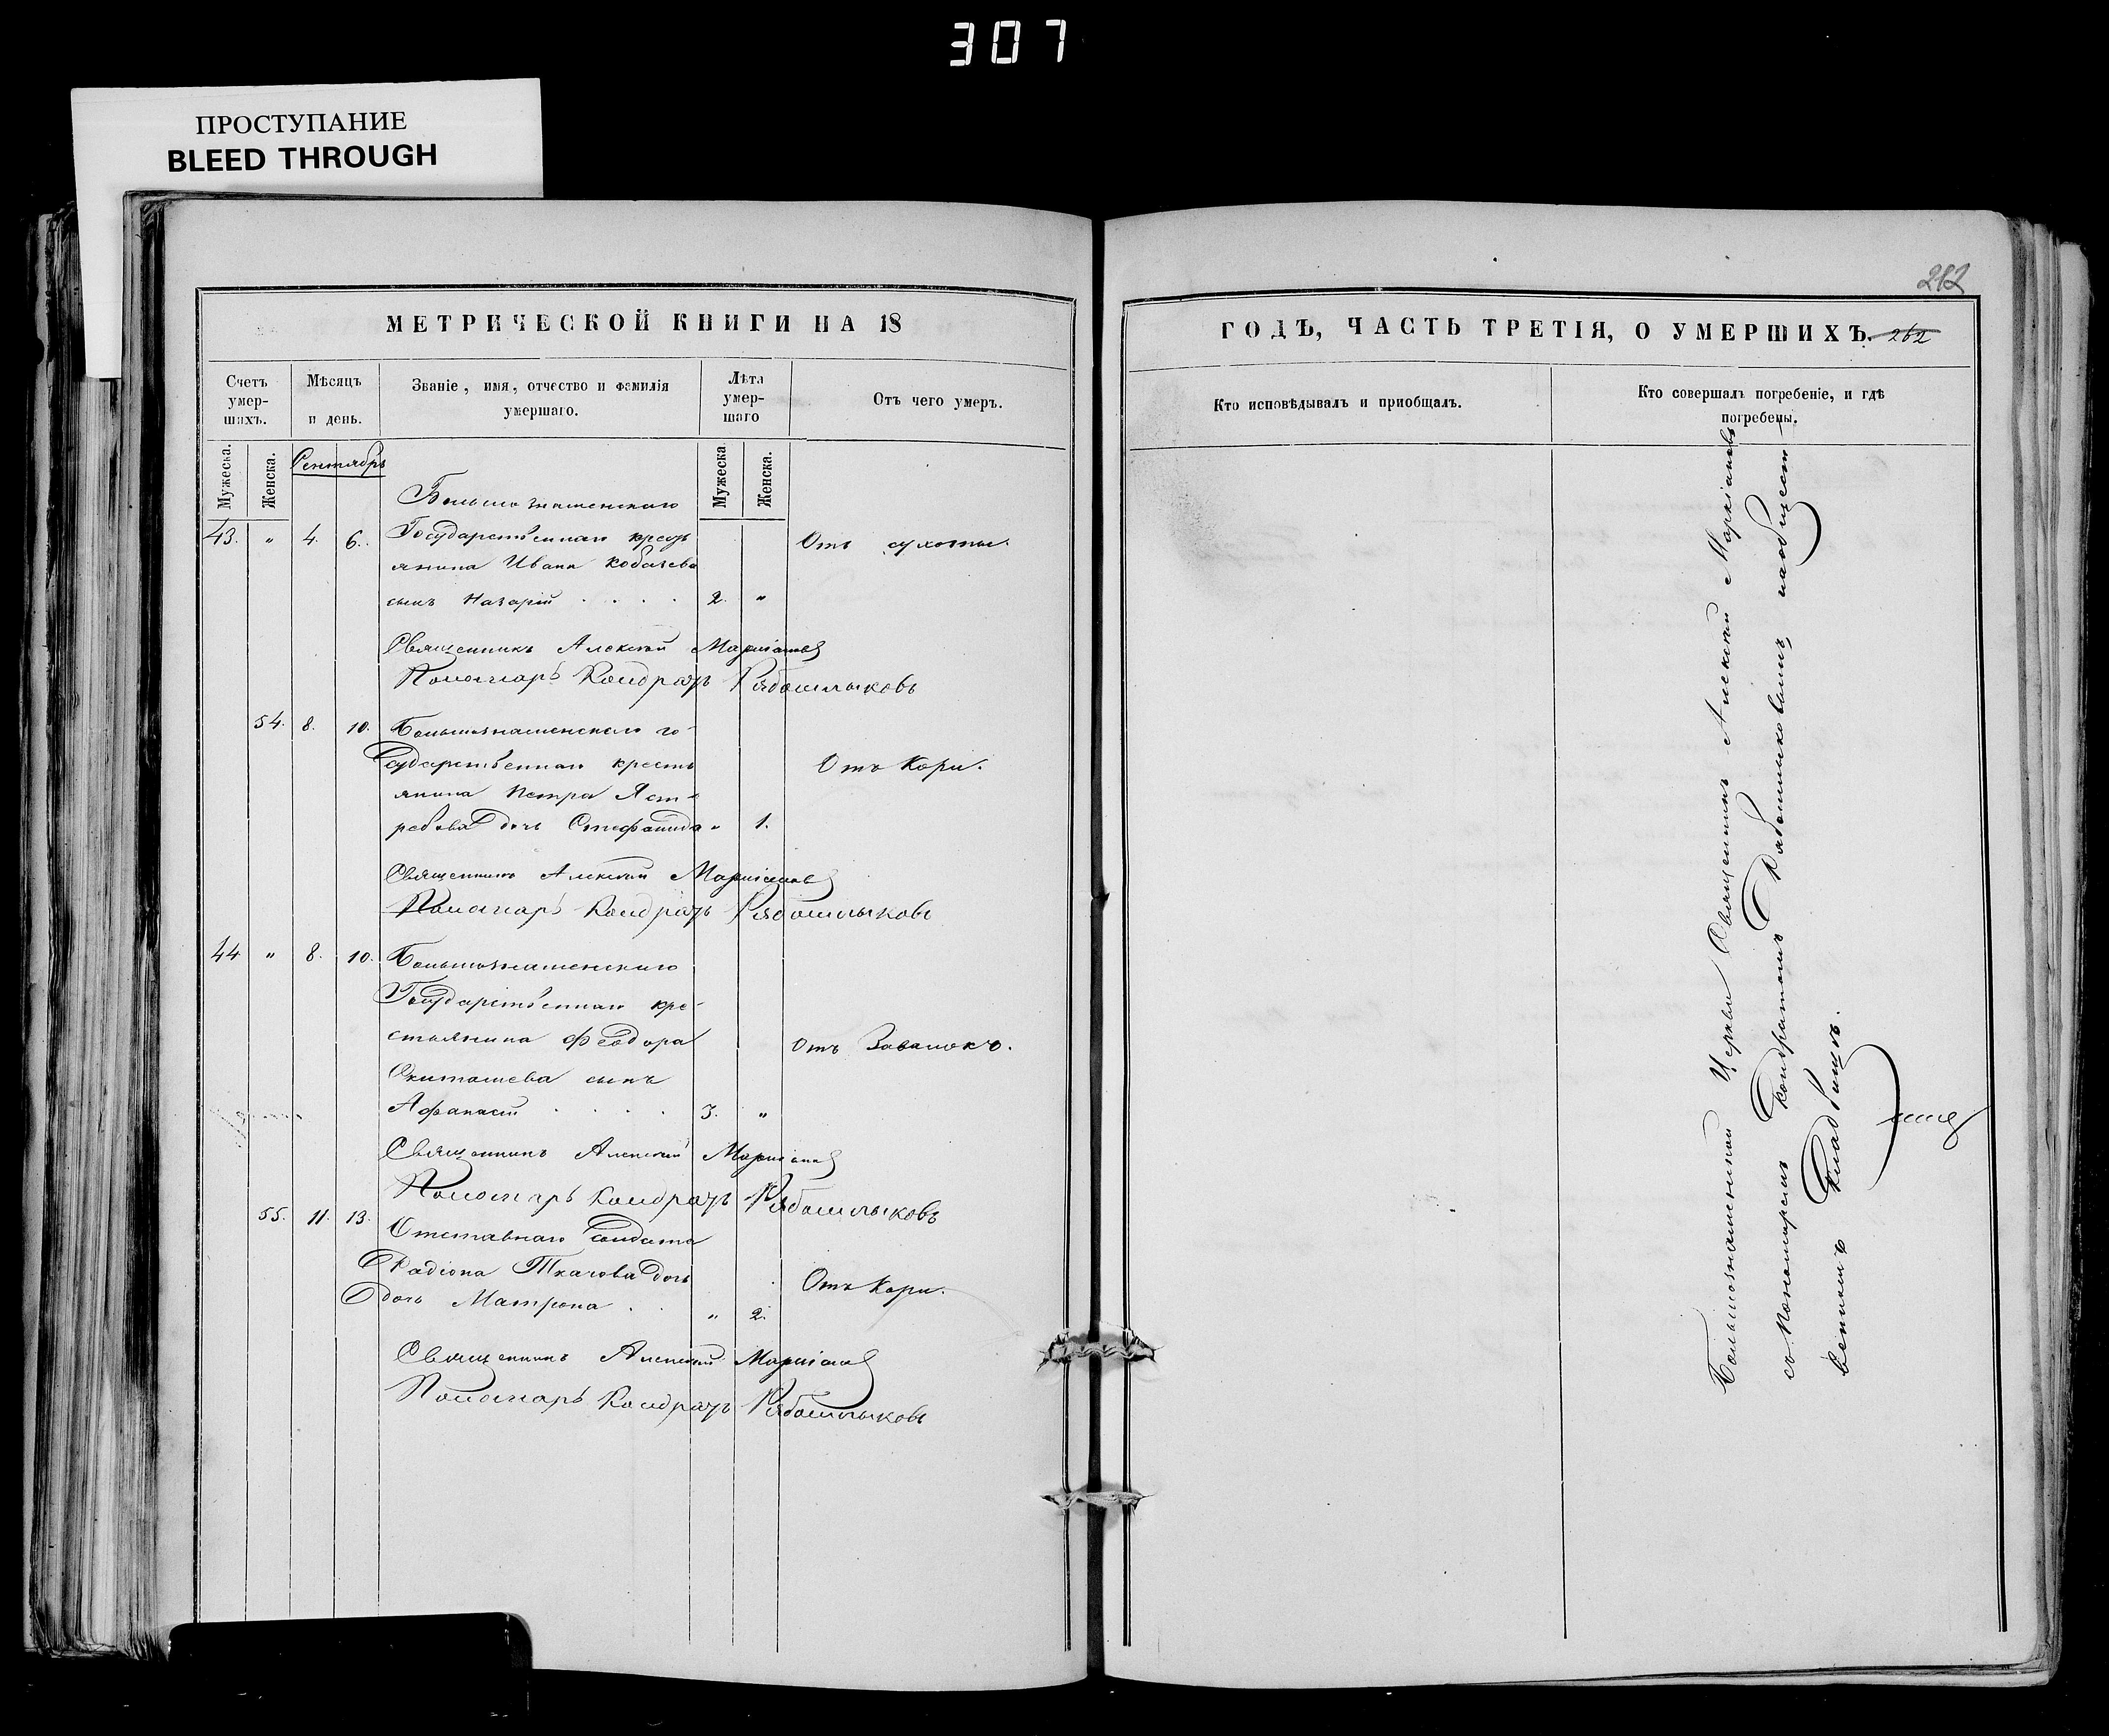 307
ПРОСТУПАНИЕ
BLEED THROUGH
МЕТРИЧЕСКОЙ КНИГИ НА 18
Счетъ умер-шихъ.
Мѣсяцъ и день.
Званіе, имя, отчество и фамилія умершаго.
Лѣта умер-шаго
Отъ чего умеръ.
Мужеска.
Женска.
Сентябрь
Мужеска
Женска.
Большезнаменскаго
43. „ 4. 6. Государственнаго кресть
янина Ивана
сынъ Назарій . . . . 2. „
Отъ сухоты.
Священникъ Алексій Маркіановъ
Пономарь Кондратъ Рябошлыковъ
54. 8. 10. Большезнаменскаго го-
сударственнаго кресть
янина Петра Яст-
ребова дочь Стефанида „ 1.
Отъ Кори.
Священникъ Алексій Маркіановъ
Пономарь Кондратъ Рябошлыковъ
44 „ 8. 10. Большезнаменскаго
Государственнаго кре-
стьянина Феодора
сынъ
Афанасій . . . . 3. „
Отъ Завалокъ.
Священникъ Алексій Маркіановъ
Пономарь Кондратъ Рябошлыковъ
55. 11. 13. Отставнаго солдата
Радіона Ткачова дочь
дочь Матрона . . „ 2.
Отъ Кори.
Священникъ Алексій Маркіановъ
Пономарь Кондратъ Рябошлыковъ
282
ГОДЪ, ЧАСТЬ ТРЕТІЯ, О УМЕРШИХЪ. 262
Кто исповѣдывалъ и приобщалъ.
Кто совершалъ погребеніе, и гдѣ погребены.
Большезнаменской Церкви Священникъ Алексій Маркіановъ
съ Пономаремъ Кондратомъ Рябошлыковымъ, на общест-
венномъ Кладбищѣ.